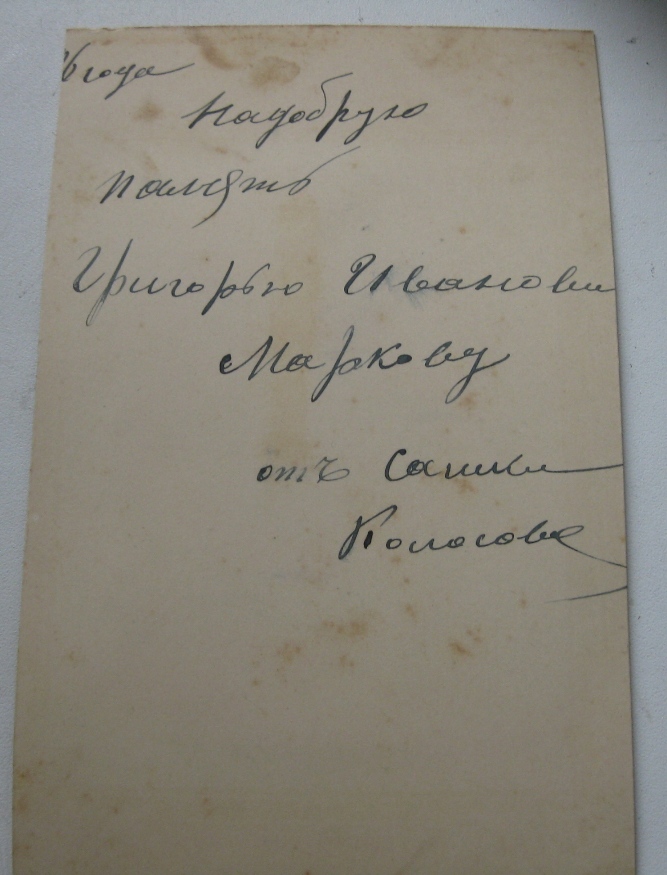 6 года
Надобрую
память
Григорью Иванови
Маркову
отъ Сашки
Колосова